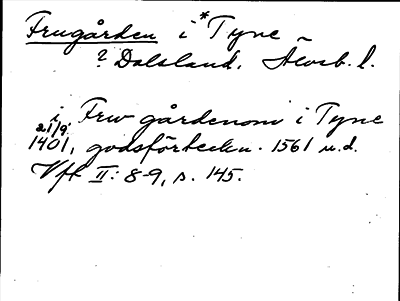 Frugården i *Tyne
? Dalsland. Älvsb. l.
i Frw gårdenom i Tyne
21/9 1401, godsförteckn. 1561 u.d.
Vfl II: 8-9, s. 145.